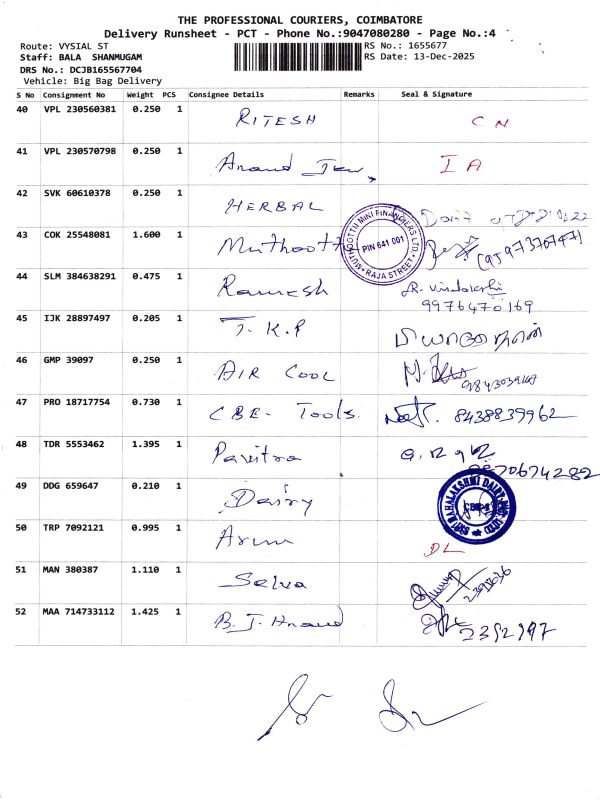 THE PROFESSIONAL COURIERS, COIMBATORE
Delivery Runsheet - PCT - Phone No.:9047080280 - Page No.:4
Route: VYSIAL ST RS No.: 1655677
Staff: BALA SHANMUGAM RS Date: 13-Dec-2025
DRS No.: DCJB165567704
Vehicle: Big Bag Delivery
S No Consignment No Weight PCS Consignee Details Remarks Seal & Signature
40 VPL 230560381 0.250 1 RITESH CN
41 VPL 230570798 0.250 1 Anand IA
42 SVK 60610378 0.250 1 HERBAL
43 COK 25548081 1.600 1 Muthoott
MUTHOOTTU MINI FINANCIERS LTD. PIN 641 001 RAJA STREET
44 SLM 384638291 0.475 1 Ramesh
9976470169
45 IJK 28897497 0.205 1 T.K.P
46 GMP 39097 0.250 1 AIR COOL
47 PRO 18717754 0.730 1 CBE- Tools. 8438839962
48 TDR 5553462 1.395 1 Pavitra
49 DDG 659647 0.210 1 Dairy
50 TRP 7092121 0.995 1 Arun DL
51 MAN 380387 1.110 1 Selva
52 MAA 714733112 1.425 1 B.J. Anand